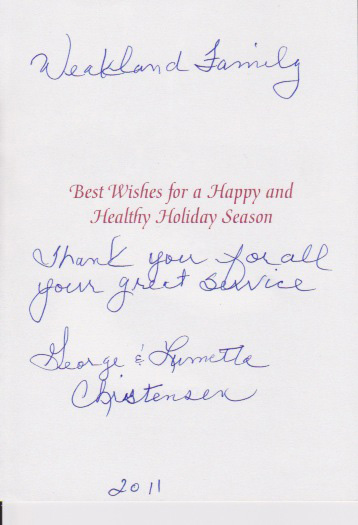 Weakland Family
Best Wishes for a Happy and
Healthy Holiday Season
Thank you for all
your great service
George &
Christensen
2011